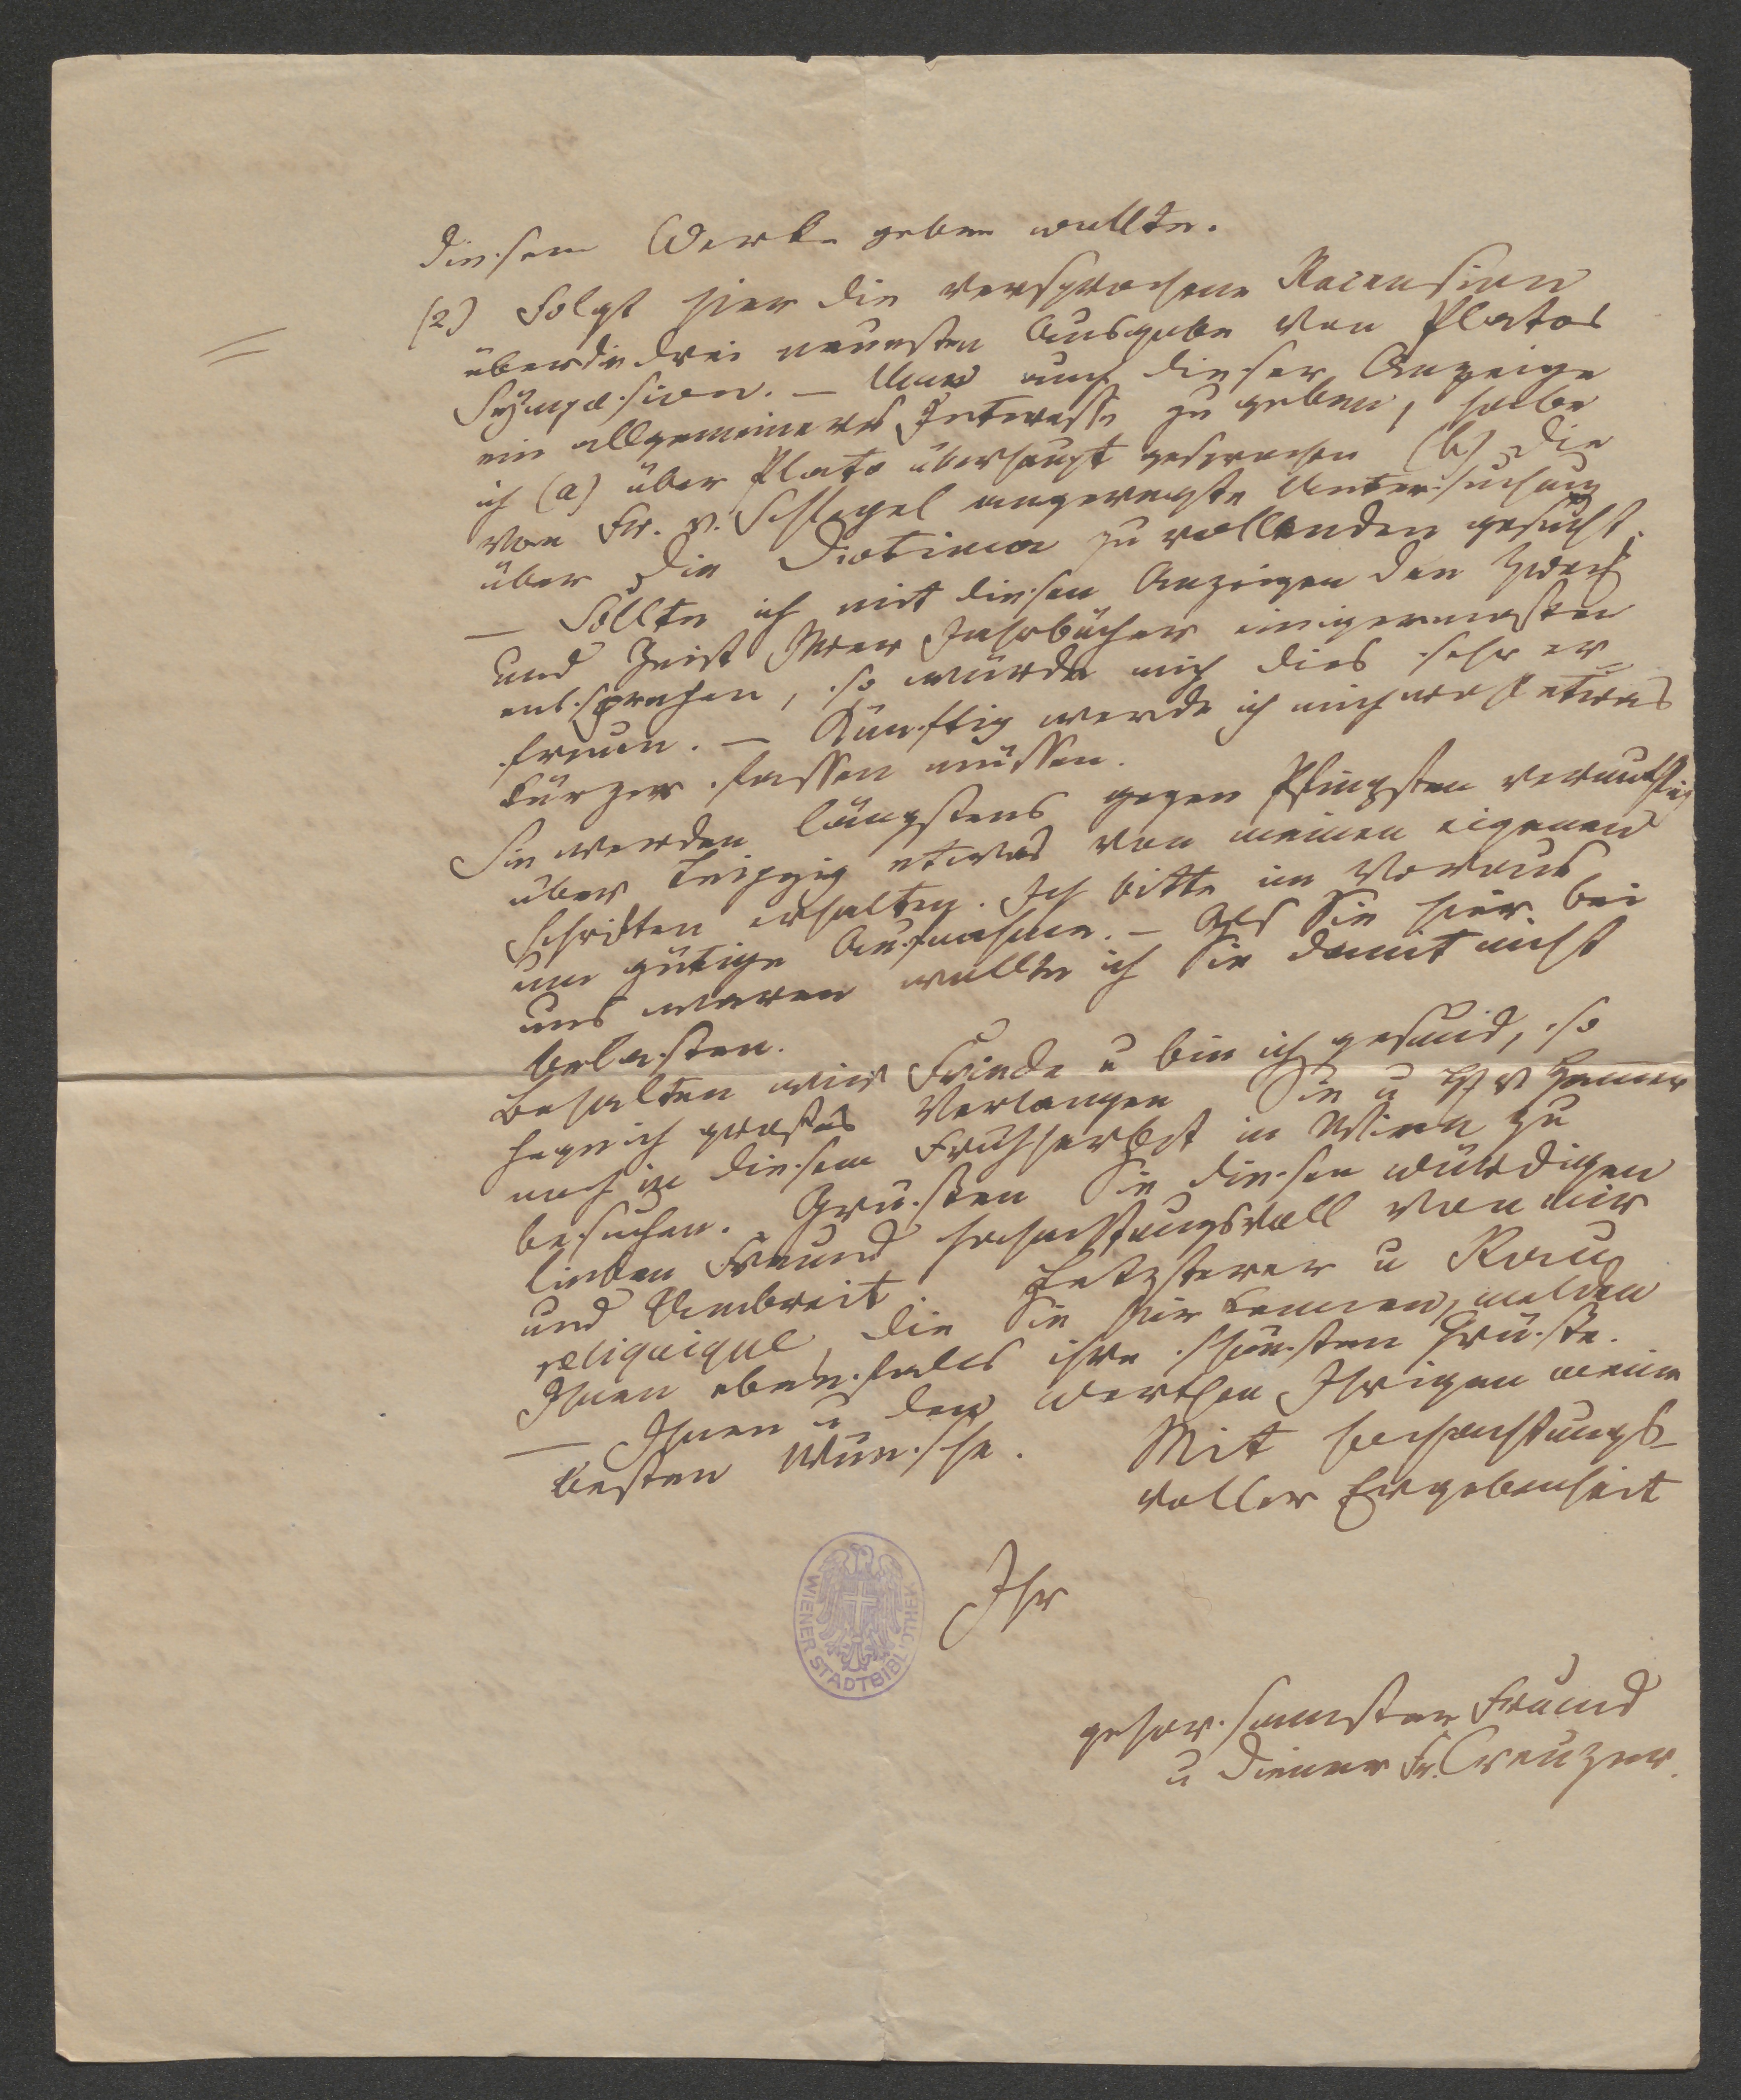 diesem Werke geben wollte.
(2) Folgt hier die versprochene Recension
über die drei neuesten Ausgabe von Platos
Symposion. — Um auch dieser Anzeige
ein allgemeineres Interesse zu geben, habe
ich (a) über Plato überhaupt gesprochen (b) die
von Fr. v. Schlegel angeregte Untersuchung
über die Diotima zu vollenden gesucht.
— Sollte ich mit diesen Anzeigen den Zweck
und Geist Ihrer Jahrbücher einigermassen
entsprechen, so würde mich dies sehr er-
freuen. — Künftig werde ich mich etwas
kürzer fassen müssen.
Sie werden längstens gegen Pfingsten
über Leipzig etwas von meinen eigenen
Schriften erhalten. Ich bitte im Voraus
um gütige Aufnahme. — Als Sie hier bei
uns waren wollte ich Sie damit nicht
belasten.
Behalten wir Friede u bin ich gesund, so
hege ich großes Verlangen Sie u H v Hammer
noch in diesem Frühherbst in Wien zu
besuchen. Grüssen Sie diesen würdigen
lieben Freund hochachtungsvoll von mir
und Umbreit. Letzterer u Rau
reliquique, die Sie hier kennen, melden
Ihnen ebenfalls ihre schönsten Grüsse.
— Ihnen u den werthen Ihrigen meine
besten Wünsche. Mit hochachtungs-
voller Ergebenheit
Ihr
gehorsamster Freund
u Diener Fr. Creuzer.
WIENER STADTBIBLIOTHEK